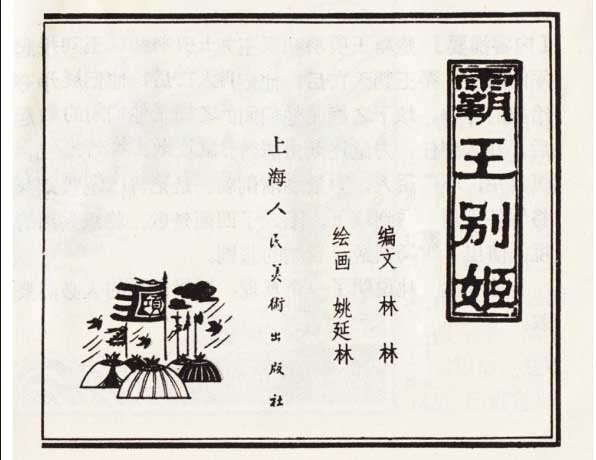 霸王别姬
编文 林 林
绘画 姚延林
上海人民美術出版社